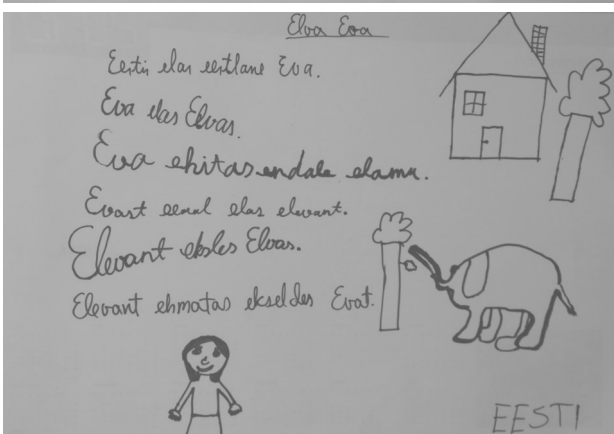 Elva Eva
Eestis elas eestlane Eva.
Eva elas Elvas.
Eva ehitas endale elamu.
Evast eemal elas elevant.
Elevant eksles Elvas.
Elevant ehmatas ekseldes Evat.
EESTI